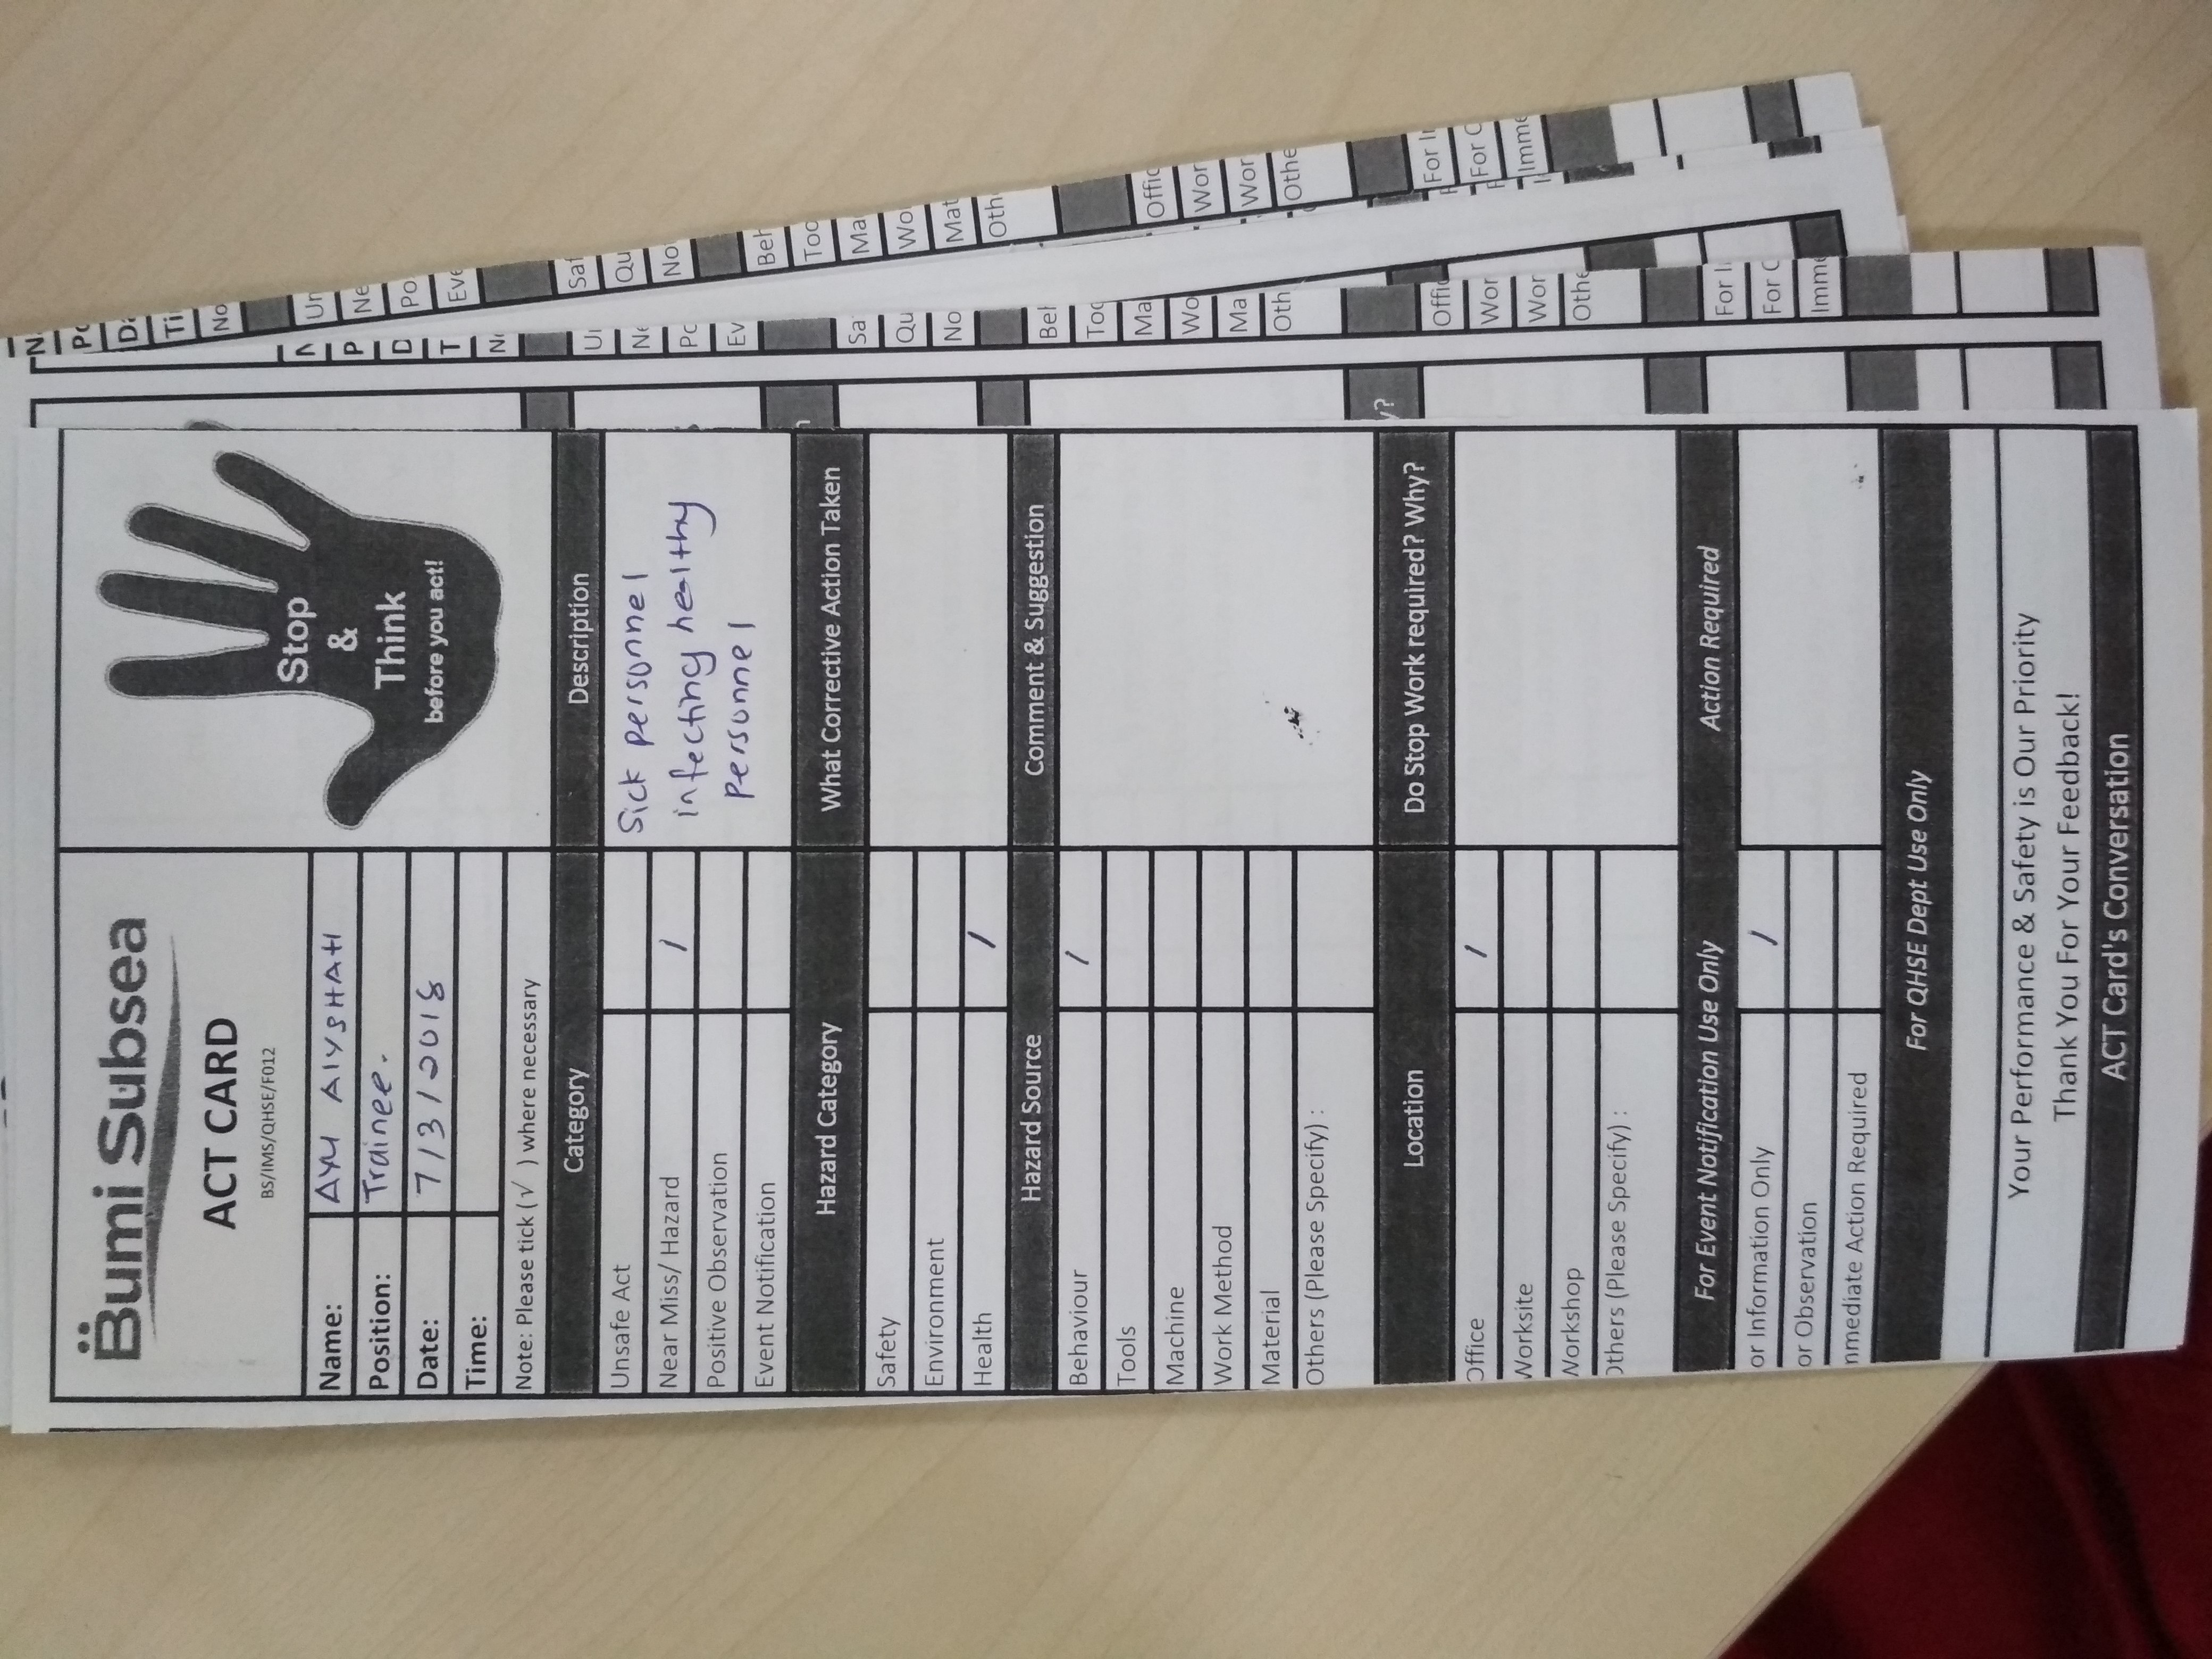 Bumi Subsea
ACT CARD
BS/IMS/QHSE/F012
Stop
&
Think
before you act!
Name: AYU AIYSHAH
Position: Trainee.
Date: 7/3/2018
Time:
Note: Please tick (√ ) where necessary
Category Description
Unsafe Act
Near Miss/ Hazard /
Positive Observation
Event Notification
Sick personnel
infecting healthy
personnel
Hazard Category What Corrective Action Taken
Safety
Environment
Health /
Hazard Source Comment & Suggestion
Behaviour /
Tools
Machine
Work Method
Material
Others (Please Specify) :
Location Do Stop Work required? Why?
Office /
Worksite
Workshop
Others (Please Specify) :
For Event Notification Use Only Action Required
or Information Only /
or Observation
mmediate Action Required
For QHSE Dept Use Only
Your Performance & Safety is Our Priority
Thank You For Your Feedback!
ACT Card's Conversation